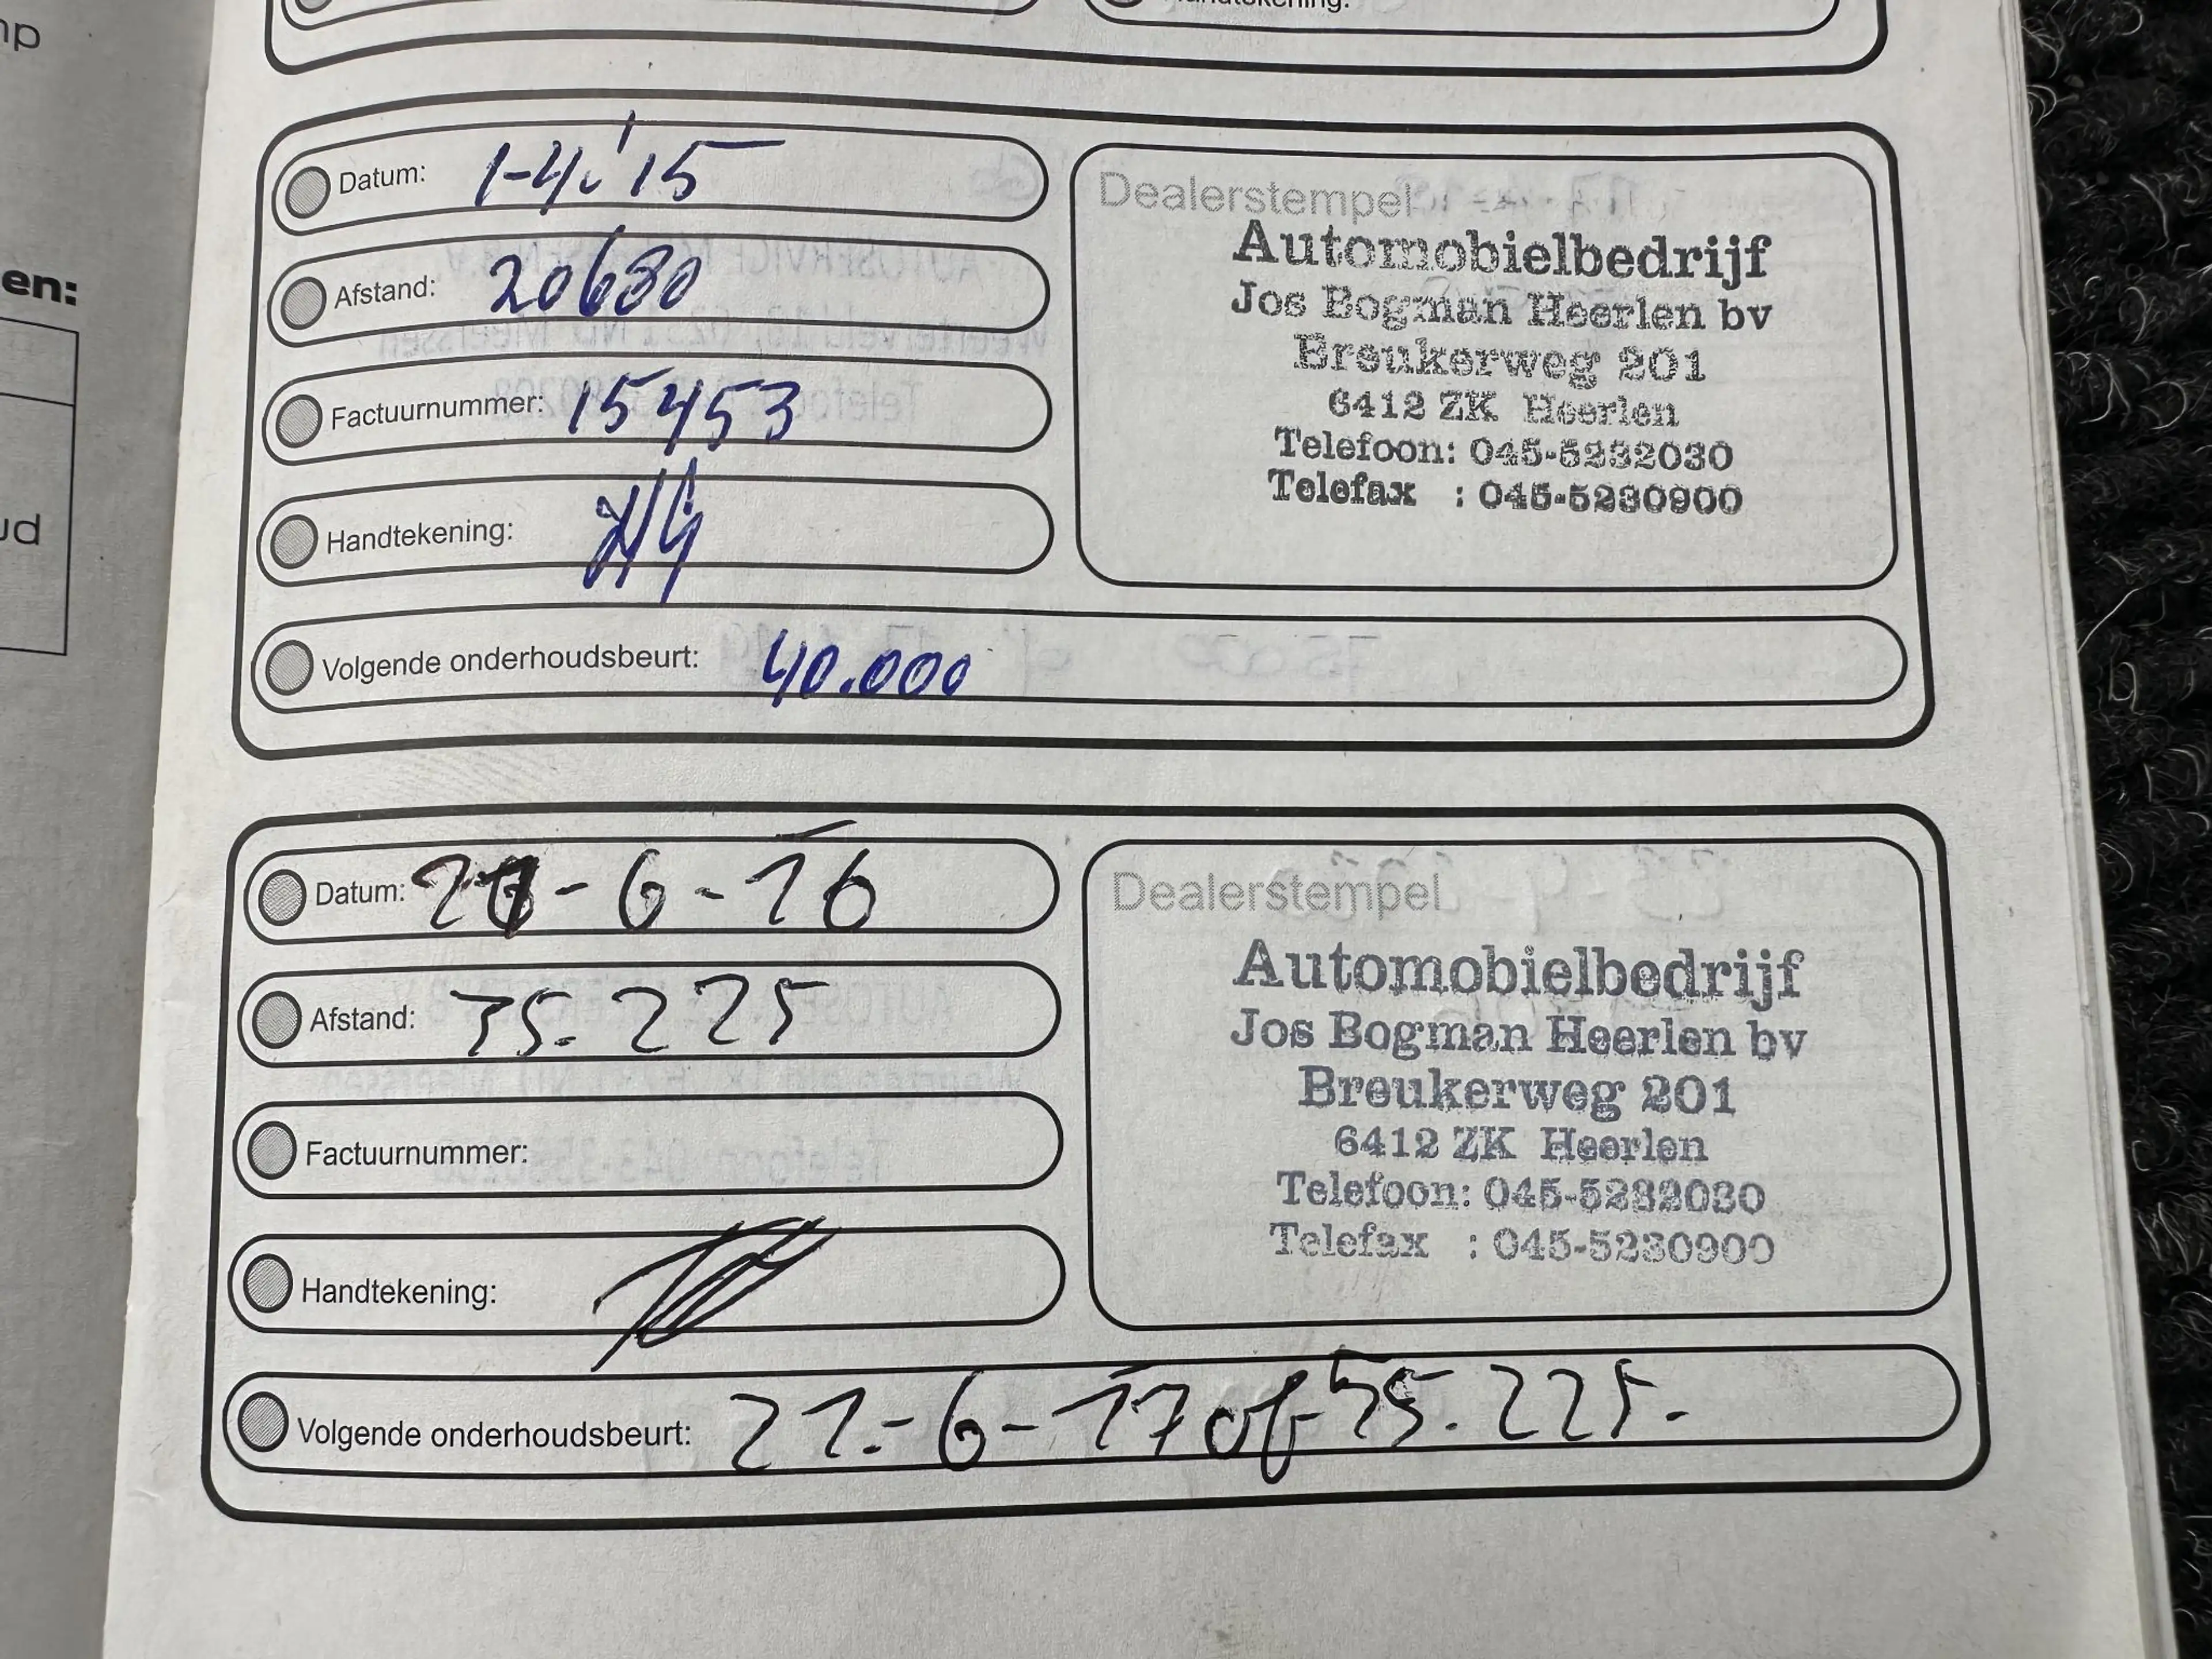 np
en:
ud
Handtekening:
Datum: 1-4-'15
Afstand: 20680
Factuurnummer: 15453
Handtekening:
Volgende onderhoudsbeurt: 40.000
Dealerstempel
Automobielbedrijf
Jos Bogman Heerlen bv
Breukerweg 201
6412 ZK Heerlen
Telefoon: 045-5232030
Telefax : 045-5230900
Datum: 21-6-16
Afstand: 35.225
Factuurnummer:
Handtekening:
Volgende onderhoudsbeurt: 21.-6-17 of 55.225.-
Dealerstempel
Automobielbedrijf
Jos Bogman Heerlen bv
Breukerweg 201
6412 ZK Heerlen
Telefoon: 045-5232030
Telefax : 045-5230900